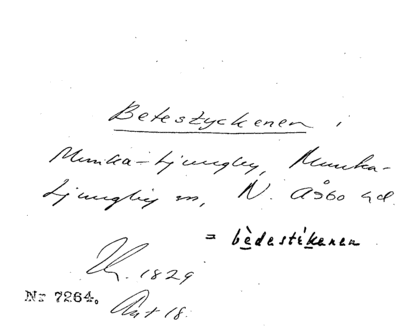 Betesstyckenen,
Munka-Ljungby, Munka-
Ljungby sn, N. Åsbo hd.
= bèdestìkenen
1829
Nr 7264. Ant 18.